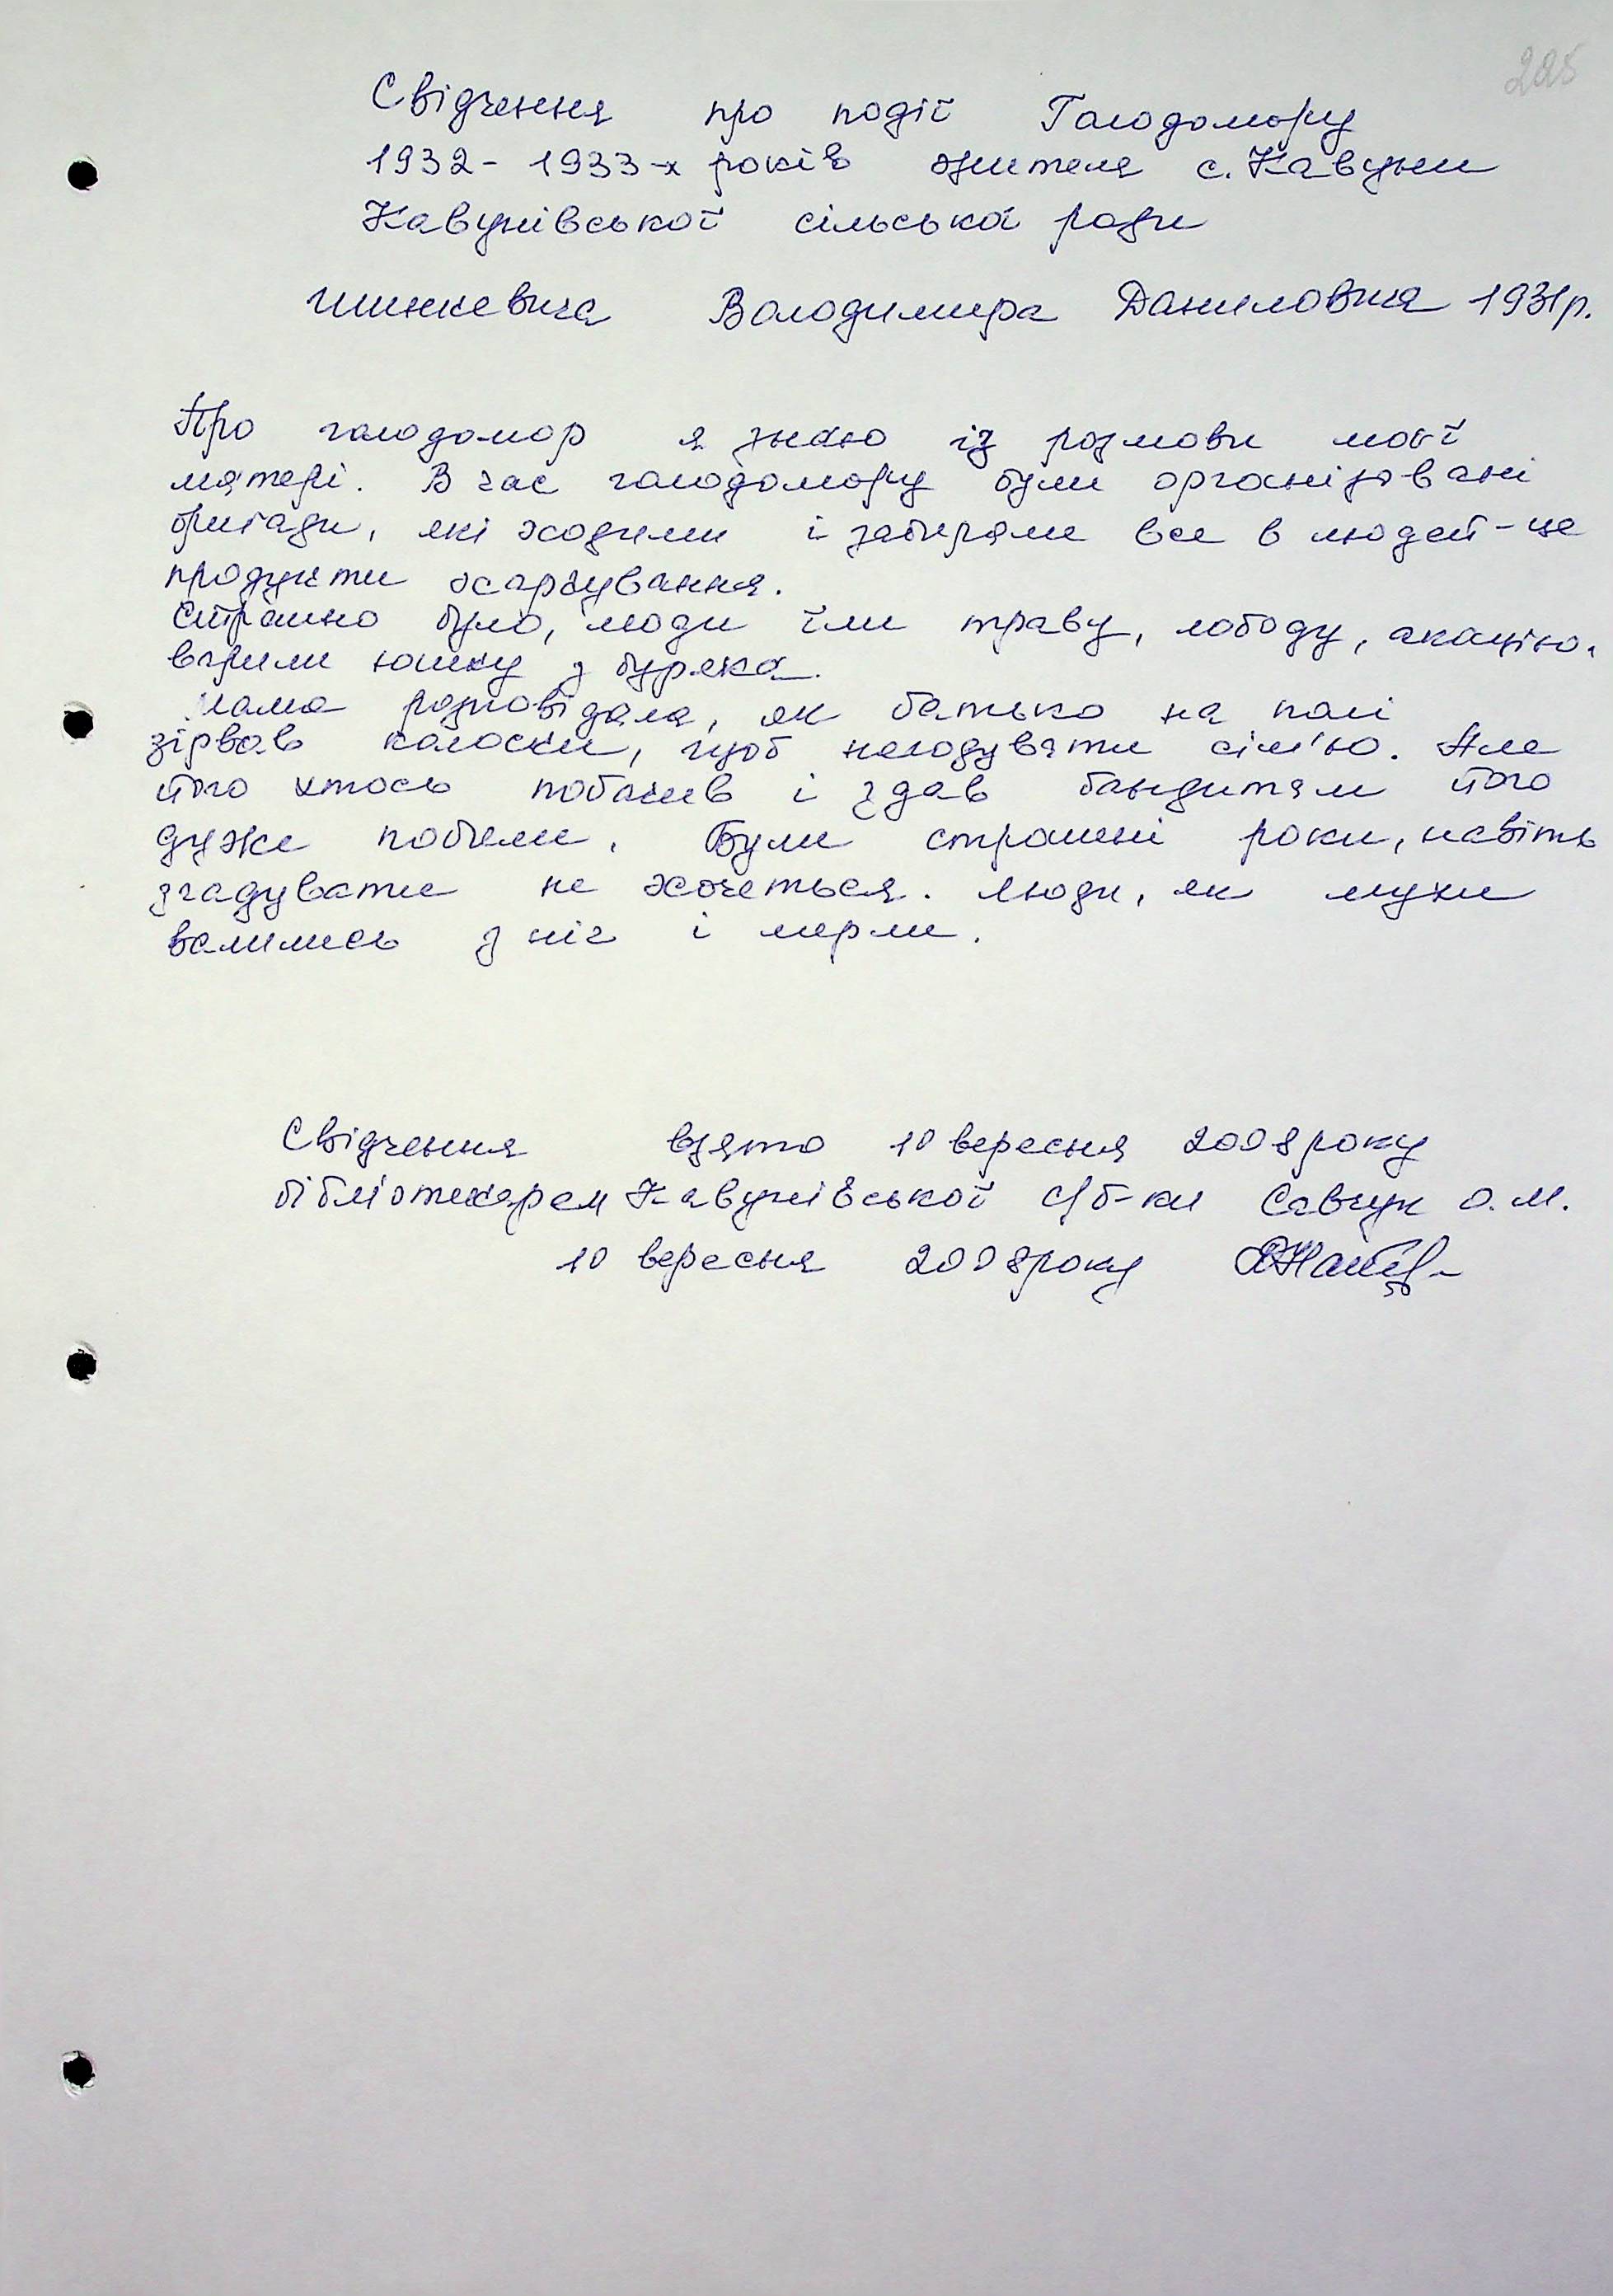 225
Свідчення про події Голодомору
1932-1933-х років жителя с. Кавуни
Кавунівської сільської ради
Шинкевича Володимира Даниловича 1931р.
Про голодомор я знаю із розмови моєї
матері. В час голодомору були організовані
бригади, які ходили і забирали все в людей-це
продукти харчування.
Страшно було, люди їли траву, лободу, акацію,
варили юшку з буряка.
Мама розповідала, як батько на полі
зірвав колоски, щоб нагодувати сім'ю. Але
його хтось побачив і здав бандитам його
дуже побили. Були страшні роки, навіть
згадувати не хочеться. Люди, як мухи
валились з ніг і мерли.
Свідчення взято 10 вересня 2008року
бібліотекарем Кавунівської с/б-ки Савчук О.М.
10 вересня 2008року